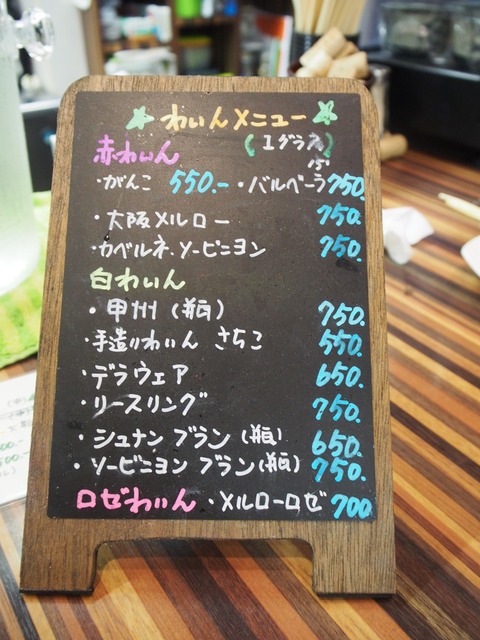 わいんメニュー
赤わいん (1グラス)
・がんこ 550.- ・バルベーラ 750.
・大阪メルロー 750.
・カベルネ.ソービニヨン 750.
白わいん
・甲州(瓶) 750.
・手造りわいん さちこ 550.
・デラウェア 650.
・リースリング 750.
・シュナンブラン(瓶) 650.
・ソービニヨンブラン(瓶) 750.
ロゼわいん ・メルローロゼ 700